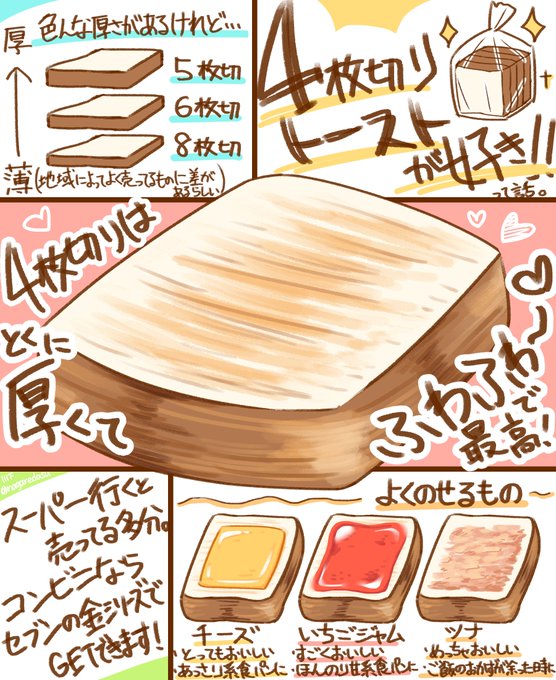 4枚切り
トースト
が好き!!
って話。
色んな厚さがあるけれど…
厚
5枚切
6枚切
8枚切
薄
(地域によってよく売ってるものに差が
あるらしい)
4枚切りは
とくに
厚くて
ふわふわ〜
で
最高!
スーパー行くと
売ってる多分。
コンビニなら
セブンの金シリーズで
GETできます!
よくのせるもの
チーズ
・とってもおいしい
・あっさり系食パンに
いちごジャム
・すごくおいしい
・ほんのり甘系食パンに
ツナ
・めっちゃおいしい
・ご飯のおかずが余った時に